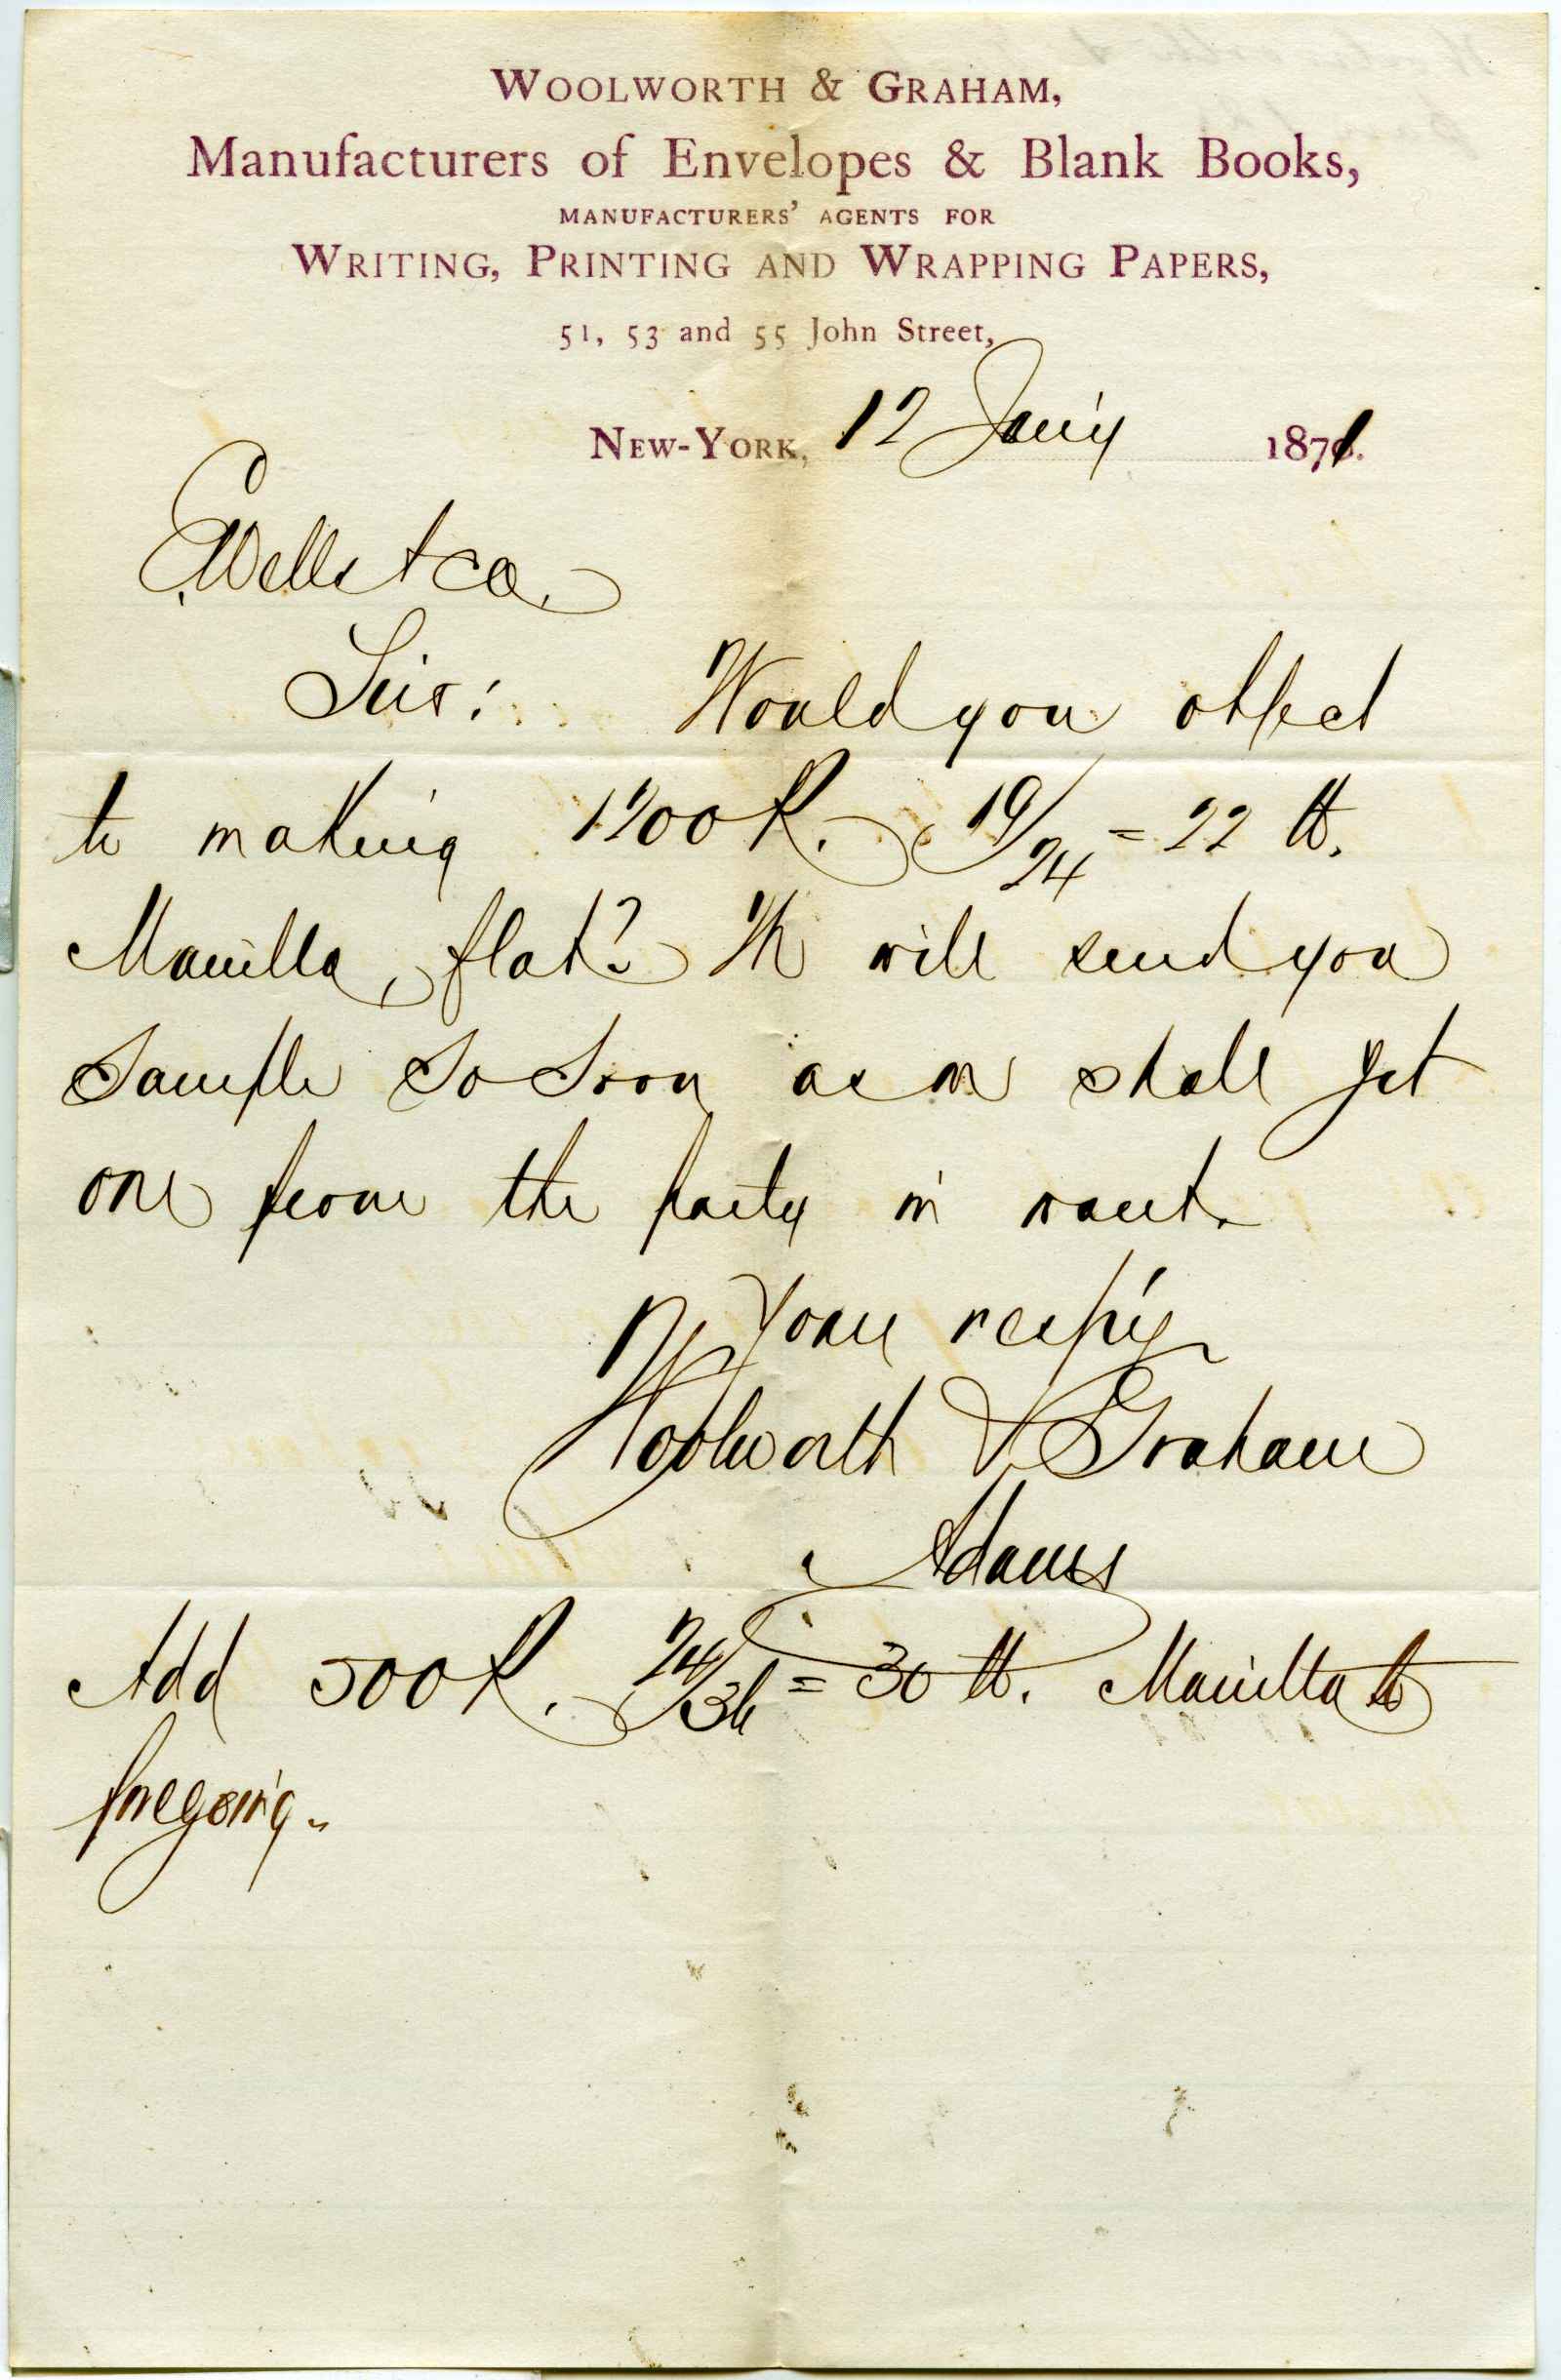 WOOLWORTH & GRAHAM,
Manufacturers of Envelopes & Blank Books,
MANUFACTURERS' AGENTS FOR
WRITING, PRINTING AND WRAPPING PAPERS,
51, 53 and 55 John Street,
NEW-YORK, 12 Jan'y 1871.
E. Wells & Co.
Sirs: Would you object
to making 1200 R. 19/24 = 22 lb.
Manilla, flat? We will send you
Sample so soon as we shall get
one from the party in want.
Yours resp'y
Woolworth & Graham
Adams
Add 500 R. 24/36 = 30 lb. Manilla to
foregoing.